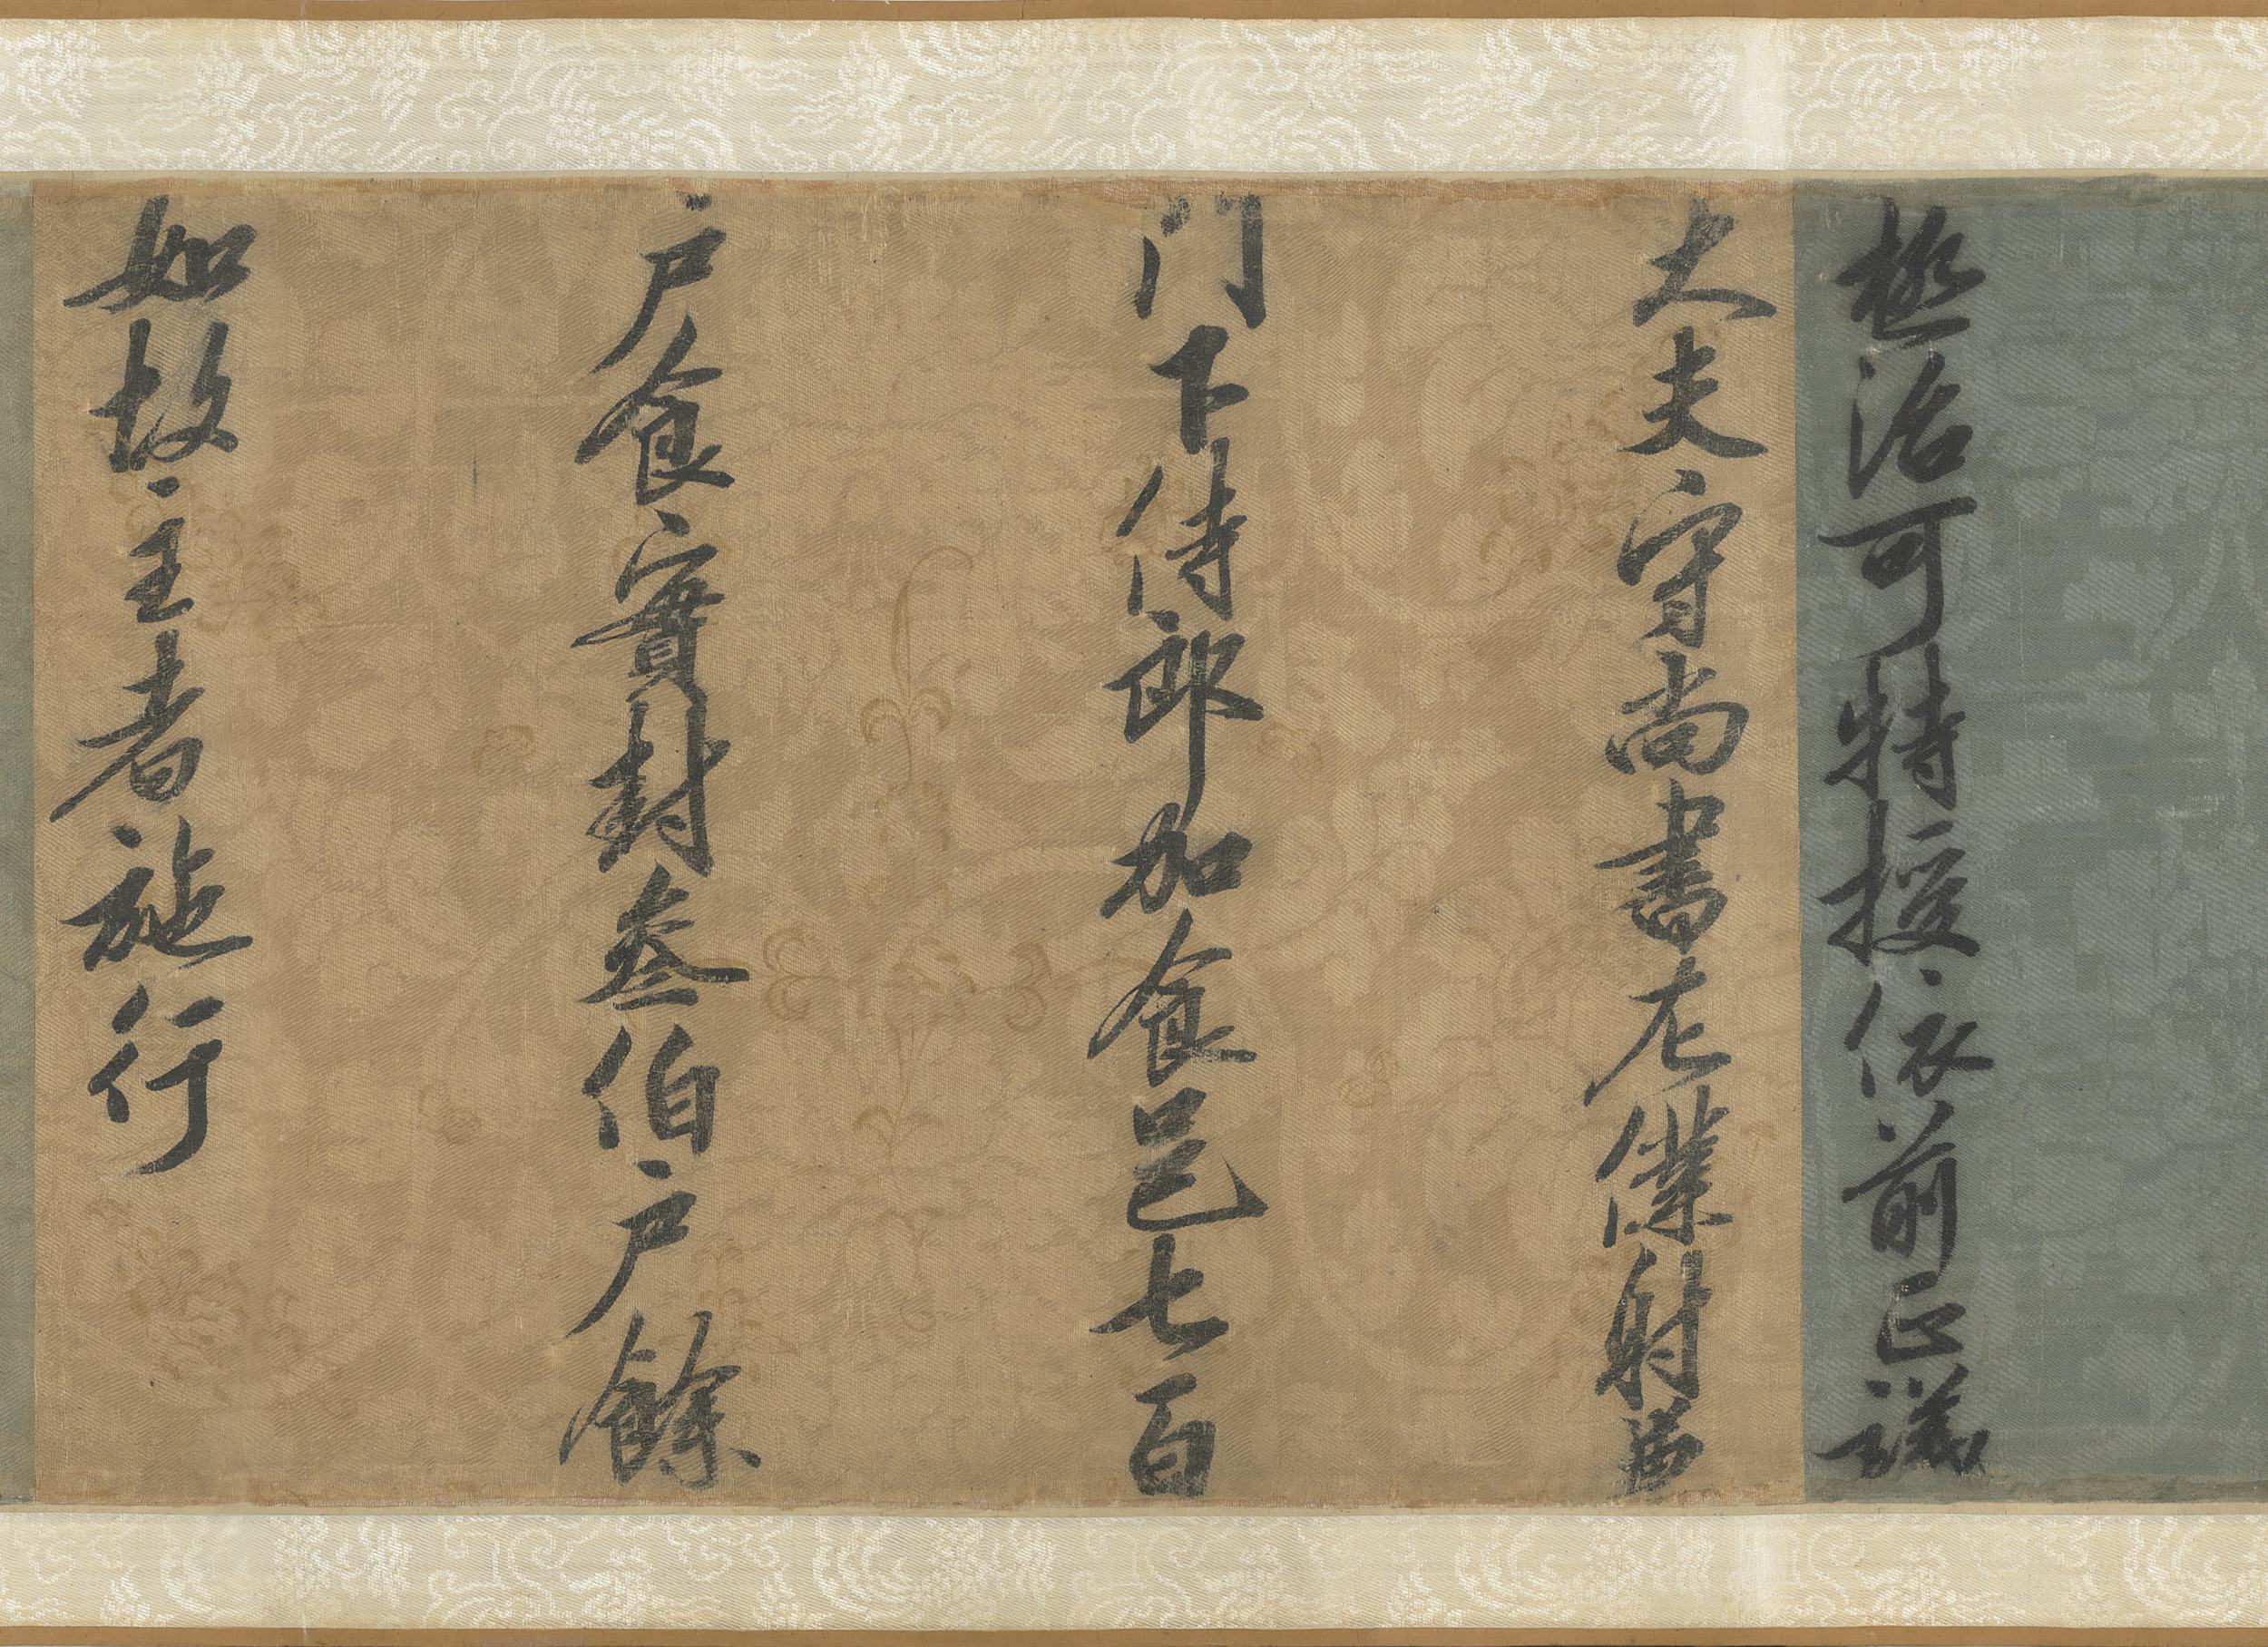 極治可特授依前正議
大夫守尚書左僕射兼
門下侍郎加食邑七百
户食實封叁伯户餘
如故主者施行